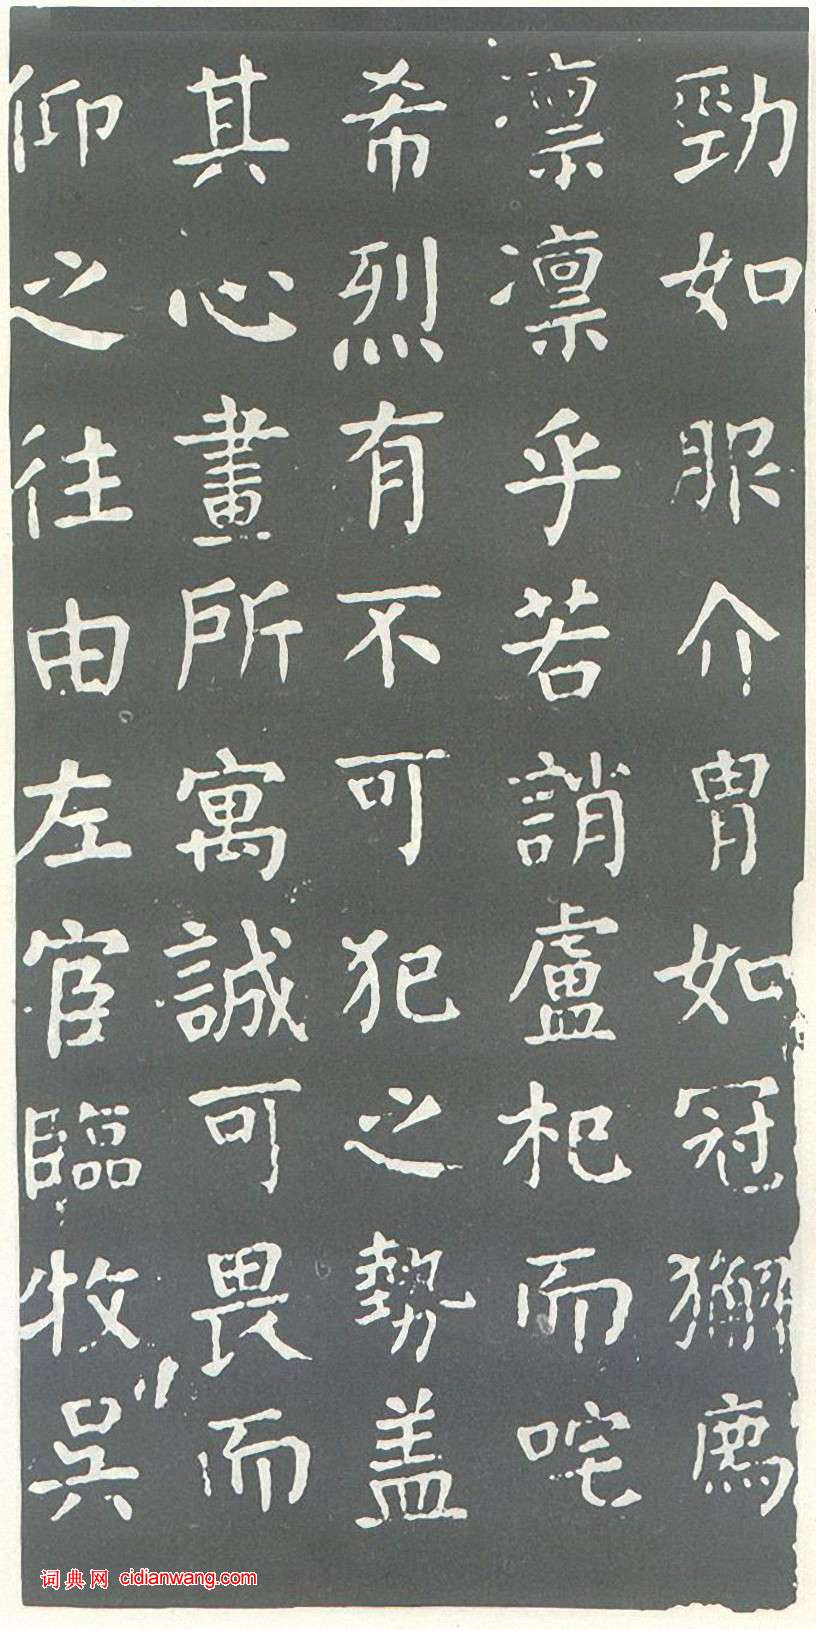 勁如服介胄如冠獬廌
凛凛乎若誚盧杞而咤
希烈有不可犯之勢盖
其心畫所寓誠可畏而
仰之往由左宦臨牧吳
词典网 cidianwang.com